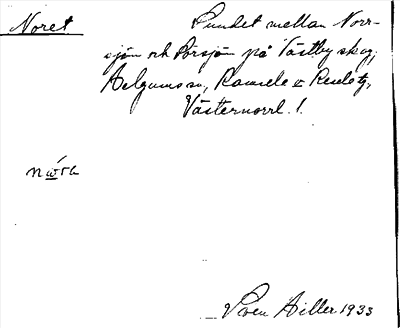 Noret Sundet mellan Norr-
sjön och Borsjön på Västby skog,
Helgums sn, Ramsele o Resele tg,
Västernorrl. l.
Sven Hiller 1933